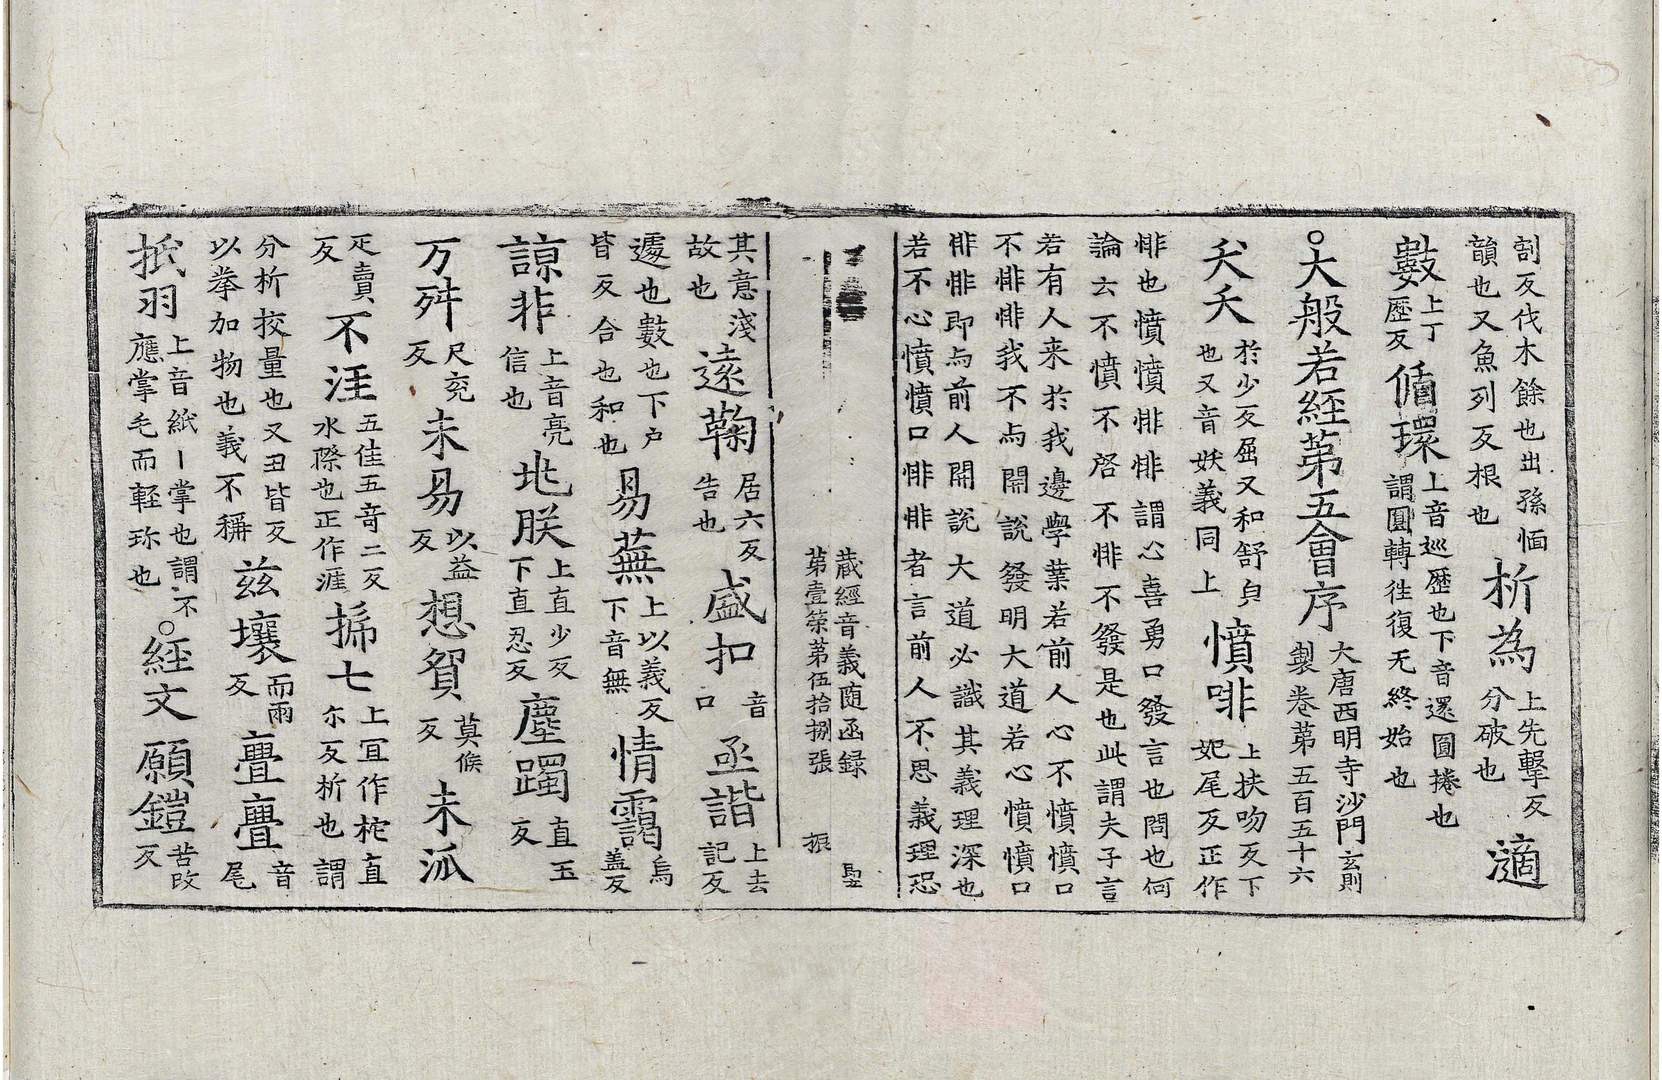 割反伐木餘也出孫愐
韻也又魚列反根也
析為
上先擊反
分破也
適
數
上丁
歷反
循環
上音巡歷也下音還圓捲也
謂圓轉往復无終始也
○大般若經第五會序
大唐西明寺沙門玄則
製卷第五百五十六
夭夭
於少反屈又和舒皃
也又音妖義同上
憤啡
上扶吻反下
妃尾反正作
悱也憤憤悱悱謂心喜勇口發言也問也何
論云不憤不啓不悱不發是也此謂夫子言
若有人来於我邊學業若前人心不憤憤口
不悱悱我不与開說發明大道若心憤憤口
悱悱即与前人開說大道必識其義理深也
若不心憤憤口悱悱者言前人不思義理恐
蔵經音義随函録
第壹筞第伍拾捌張
振
其意淺
故也
遠鞠
居六反
告也
盛扣
音
口
亟諧
上去
記反
遽也數也下戶
皆反合也和也
易蕪
上以義反
下音無
情靄
烏
盖反
諒非
上音亮
信也
兆朕
上直少反
下直忍反
塵躅
直玉
反
万舛
尺兖
反
未易
以益
反
想貿
莫候
反
未派
疋賣
反
不洼
五佳五竒二反
水際也正作涯
㨛七
上冝作柁直
尒反析也謂
分析挍量也又丑皆反
以拳加物也義不稱
兹壤
而雨
反
亹亹
音
尾
抵羽
上音紙丨掌也謂不
應掌毛而輕珎也
○經文
願鎧
苦改
反